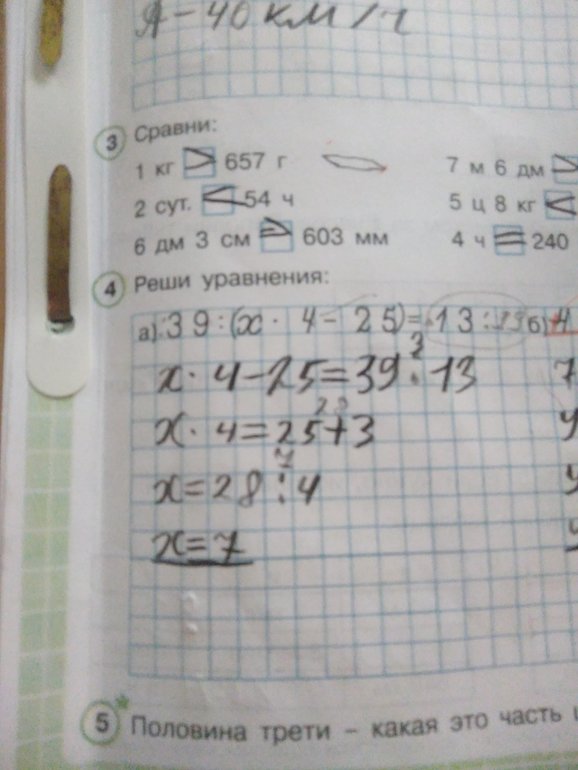 А – 40 км/ч
3 Сравни:
1 кг > 657 г
7 м 6 дм >
2 сут. < 54 ч
5 ц 8 кг <
6 дм 3 см > 603 мм
4 ч = 240
4 Реши уравнения:
а) 39 : (x · 4 – 25) = 13 б)
x · 4 – 25 = 39 : 13
3
x · 4 = 25 + 3
28
x = 28 : 4
7
x = 7
5* Половина трети – какая это часть